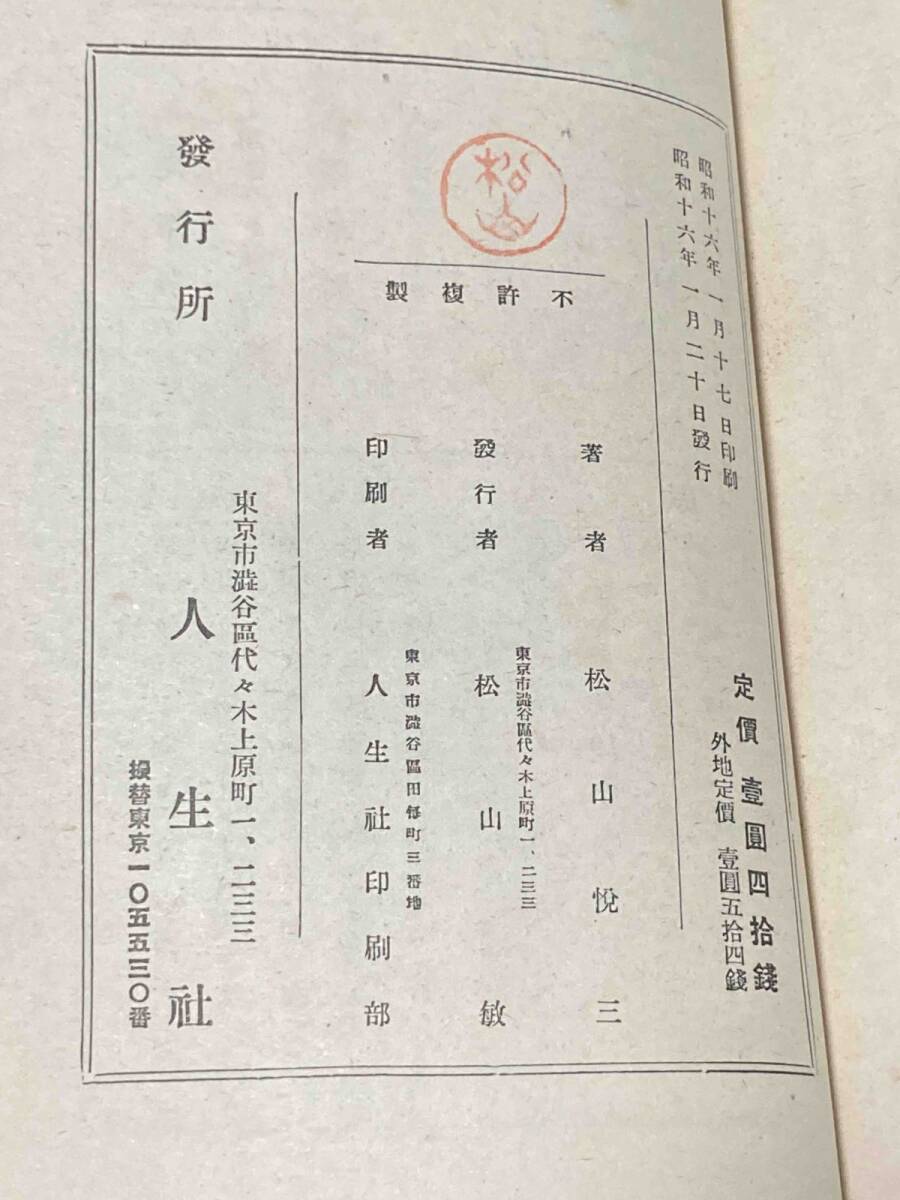 昭和十六年一月十七日印刷
昭和十六年一月二十日發行
定價 壹圓四拾錢
外地定價 壹圓五拾四錢
松山
不許複製
著者 松山悅三
東京市澁谷區代々木上原町一、二三三
發行者 松山敏
東京市澁谷區田每町三番地
印刷者 人生社印刷部
東京市澁谷區代々木上原町一、二三三
發行所 人生社
振替東京一〇五五三〇番